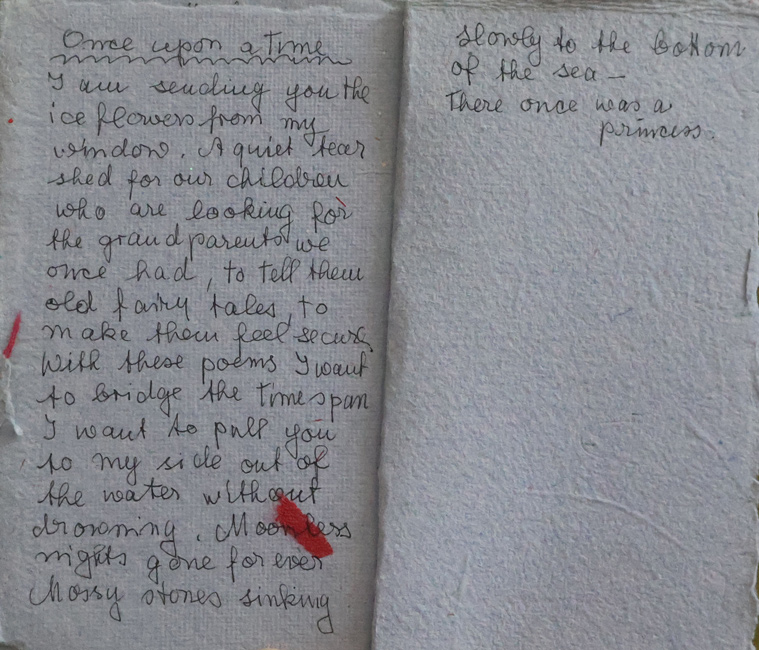 Once upon a time
I am sending you the
ice flowers from my
window. A quiet tear
shed for our children
who are looking for
the grandparents we
once had, to tell them
old fairy tales, to
make them feel secure,
With these poems I want
to bridge the time span
I want to pull you
to my side out of
the water without
drowning. Moonless
nights gone for ever
Mossy stones sinking
slowly to the bottom
of the sea –
There once was a
princess.